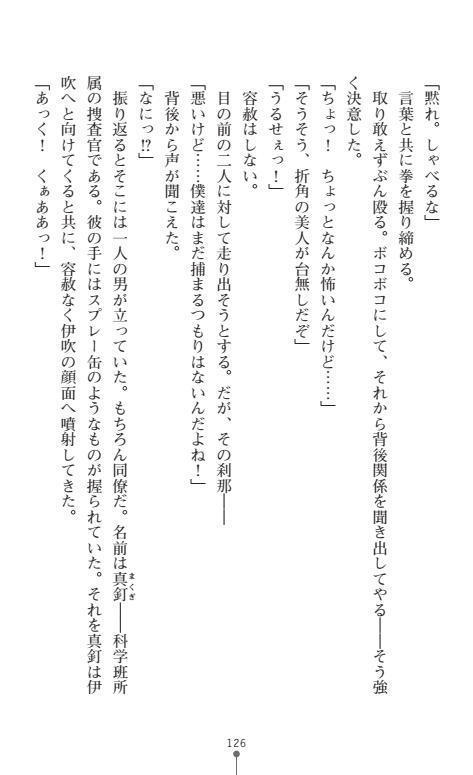 「黙れ。しゃべるな」
言葉と共に拳を握り締める。
取り敢えずぶん殴る。ボコボコにして、それから背後関係を聞き出してやる――そう強
く決意した。
「ちょっ！　ちょっとなんか怖いんだけど……」
「そうそう、折角の美人が台無しだぞ」
「うるせぇっ！」
容赦はしない。
目の前の二人に対して走り出そうとする。だが、その刹那――
「悪いけど……僕達はまだ捕まるつもりはないんだよね！」
背後から声が聞こえた。
「なにっ!?」
振り返るとそこには一人の男が立っていた。もちろん同僚だ。名前は真釘――科学班所
まくぎ
属の捜査官である。彼の手にはスプレー缶のようなものが握られていた。それを真釘は伊
吹へと向けてくると共に、容赦なく伊吹の顔面へ噴射してきた。
「あっく！　くぁああっ！」
126